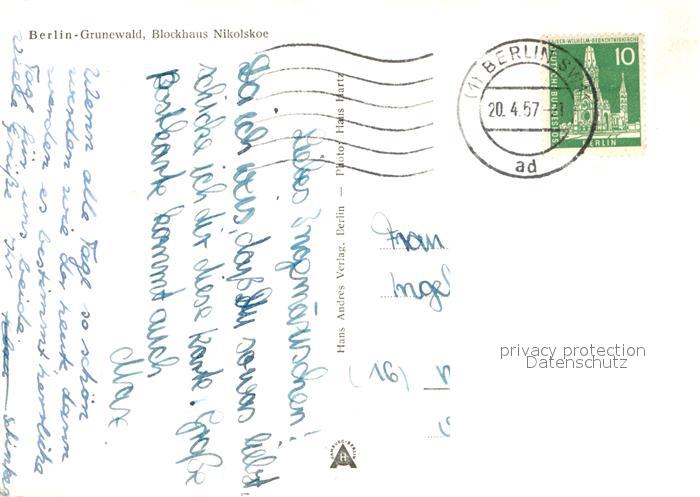 Berlin-Grunewald, Blockhaus Nikolskoe
Liebes
Da ich weiß, daß Du sowas liebst,
schicke ich dir diese Karte. Große
Postkarte kommt auch.
Max.
Wenn alle Tage so schön
werden wie der heute dann
werden es bestimmt herrliche
Tage für uns beide.
Viele Grüße Ihr
Hans Andres Verlag, Berlin — Photo: Hans Hartz
HAMBURG-BERLIN
A H
(1) BERLIN SW
20.4.57
ad
KAISER-WILHELM-GEDÄCHTNISKIRCHE
10
DEUTSCHE BUNDESPOST
BERLIN
Frau
Inge
(16)
privacy protection
Datenschutz